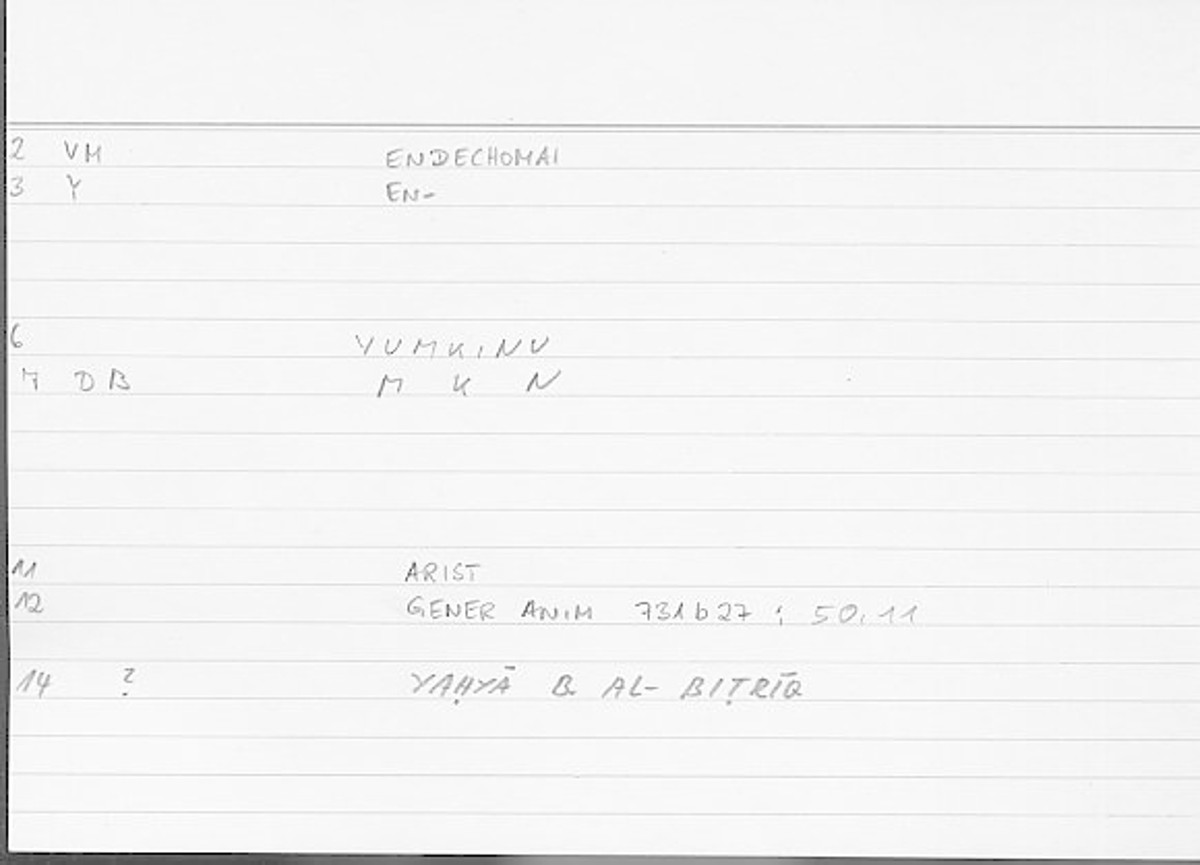 2 VM ENDECHOMAI
3 Y EN-
6 YUMKINU
7 DB M K N
11 ARIST
12 GENER ANIM 731b27 ; 50.11
14 ? YAḤYĀ B. AL-BIṬRĪQ